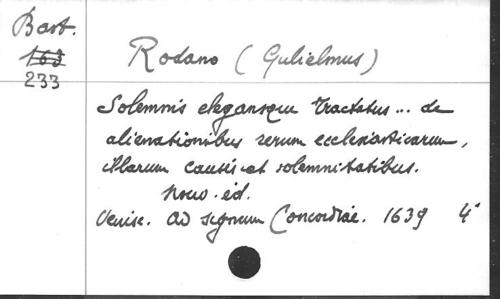 Bart.
163
233
Rodano (Gulielmus)
Solemnis elegansque tractatus... de
alienationibus rerum ecclesiasticarum,
illarum causis et solemnitatibus.
Nouv. éd.
Venise. Ad signum Concordiae. 1639 4°